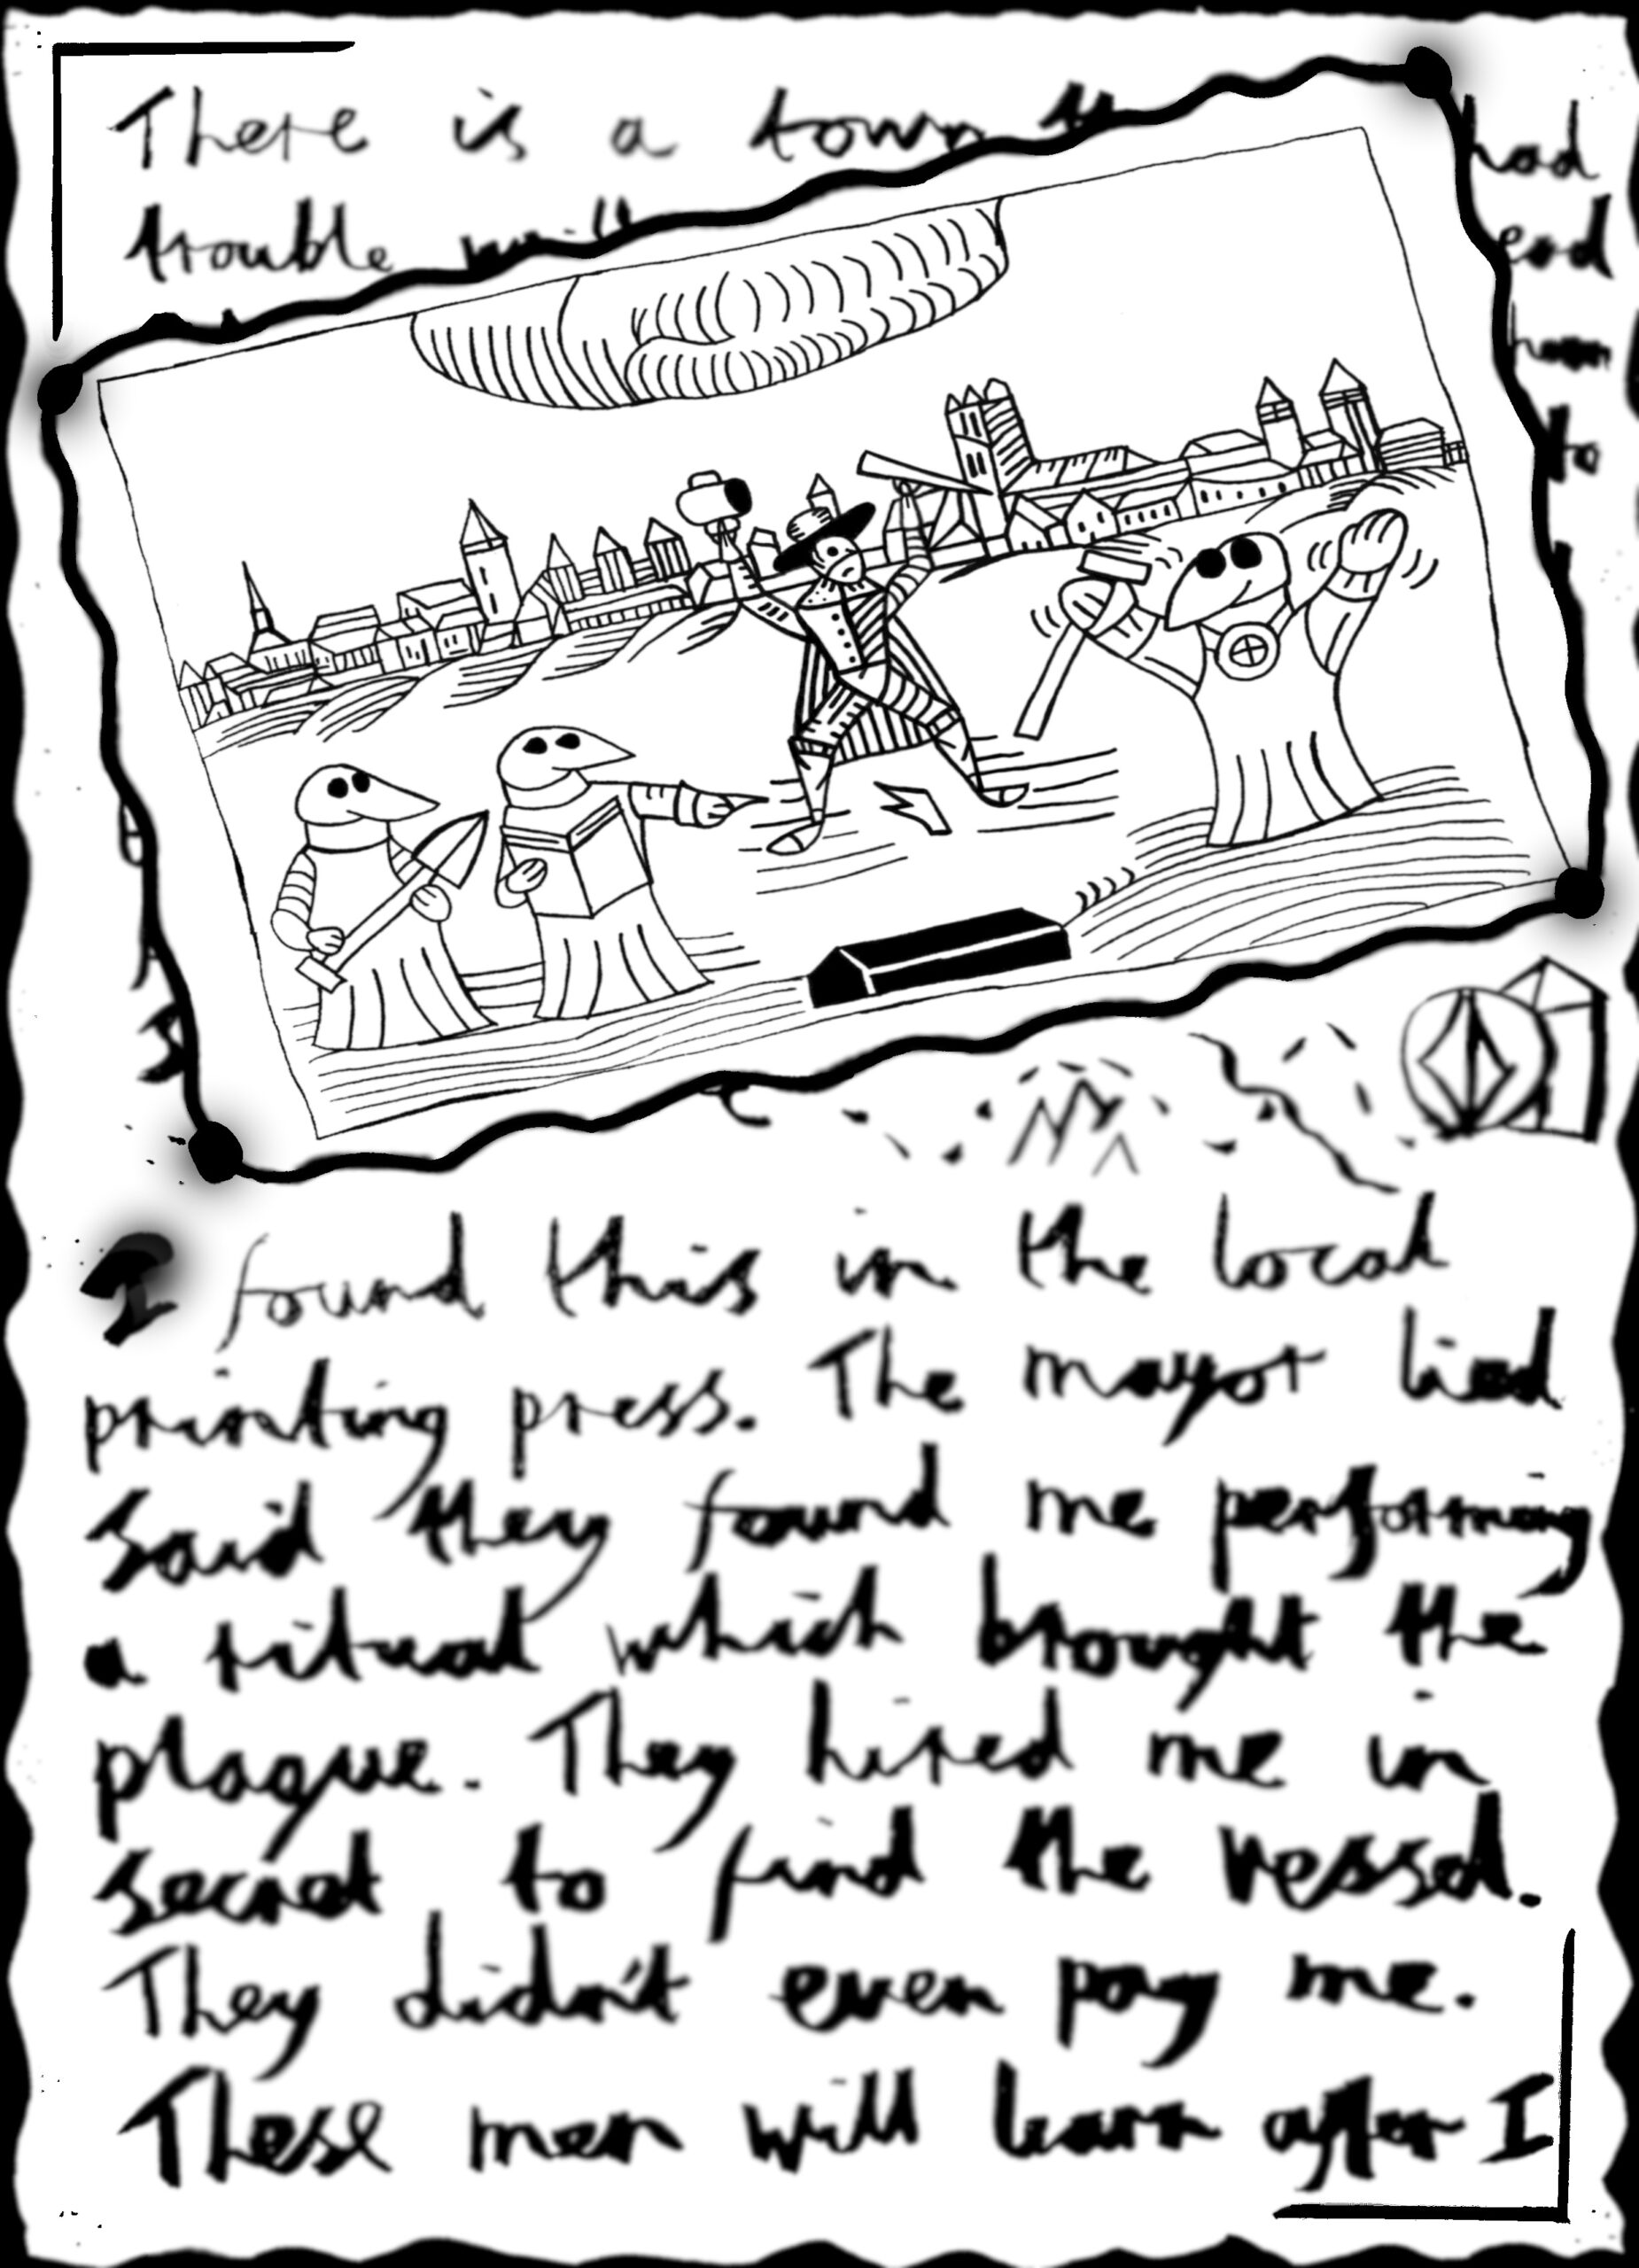 There is a town
trouble
I found this in the local
printing press. The mayor lied
Said they found me performing
a ritual which brought the
plague. They hired me in
secret to find the vessel.
They didn't even pay me.
These men will learn after I